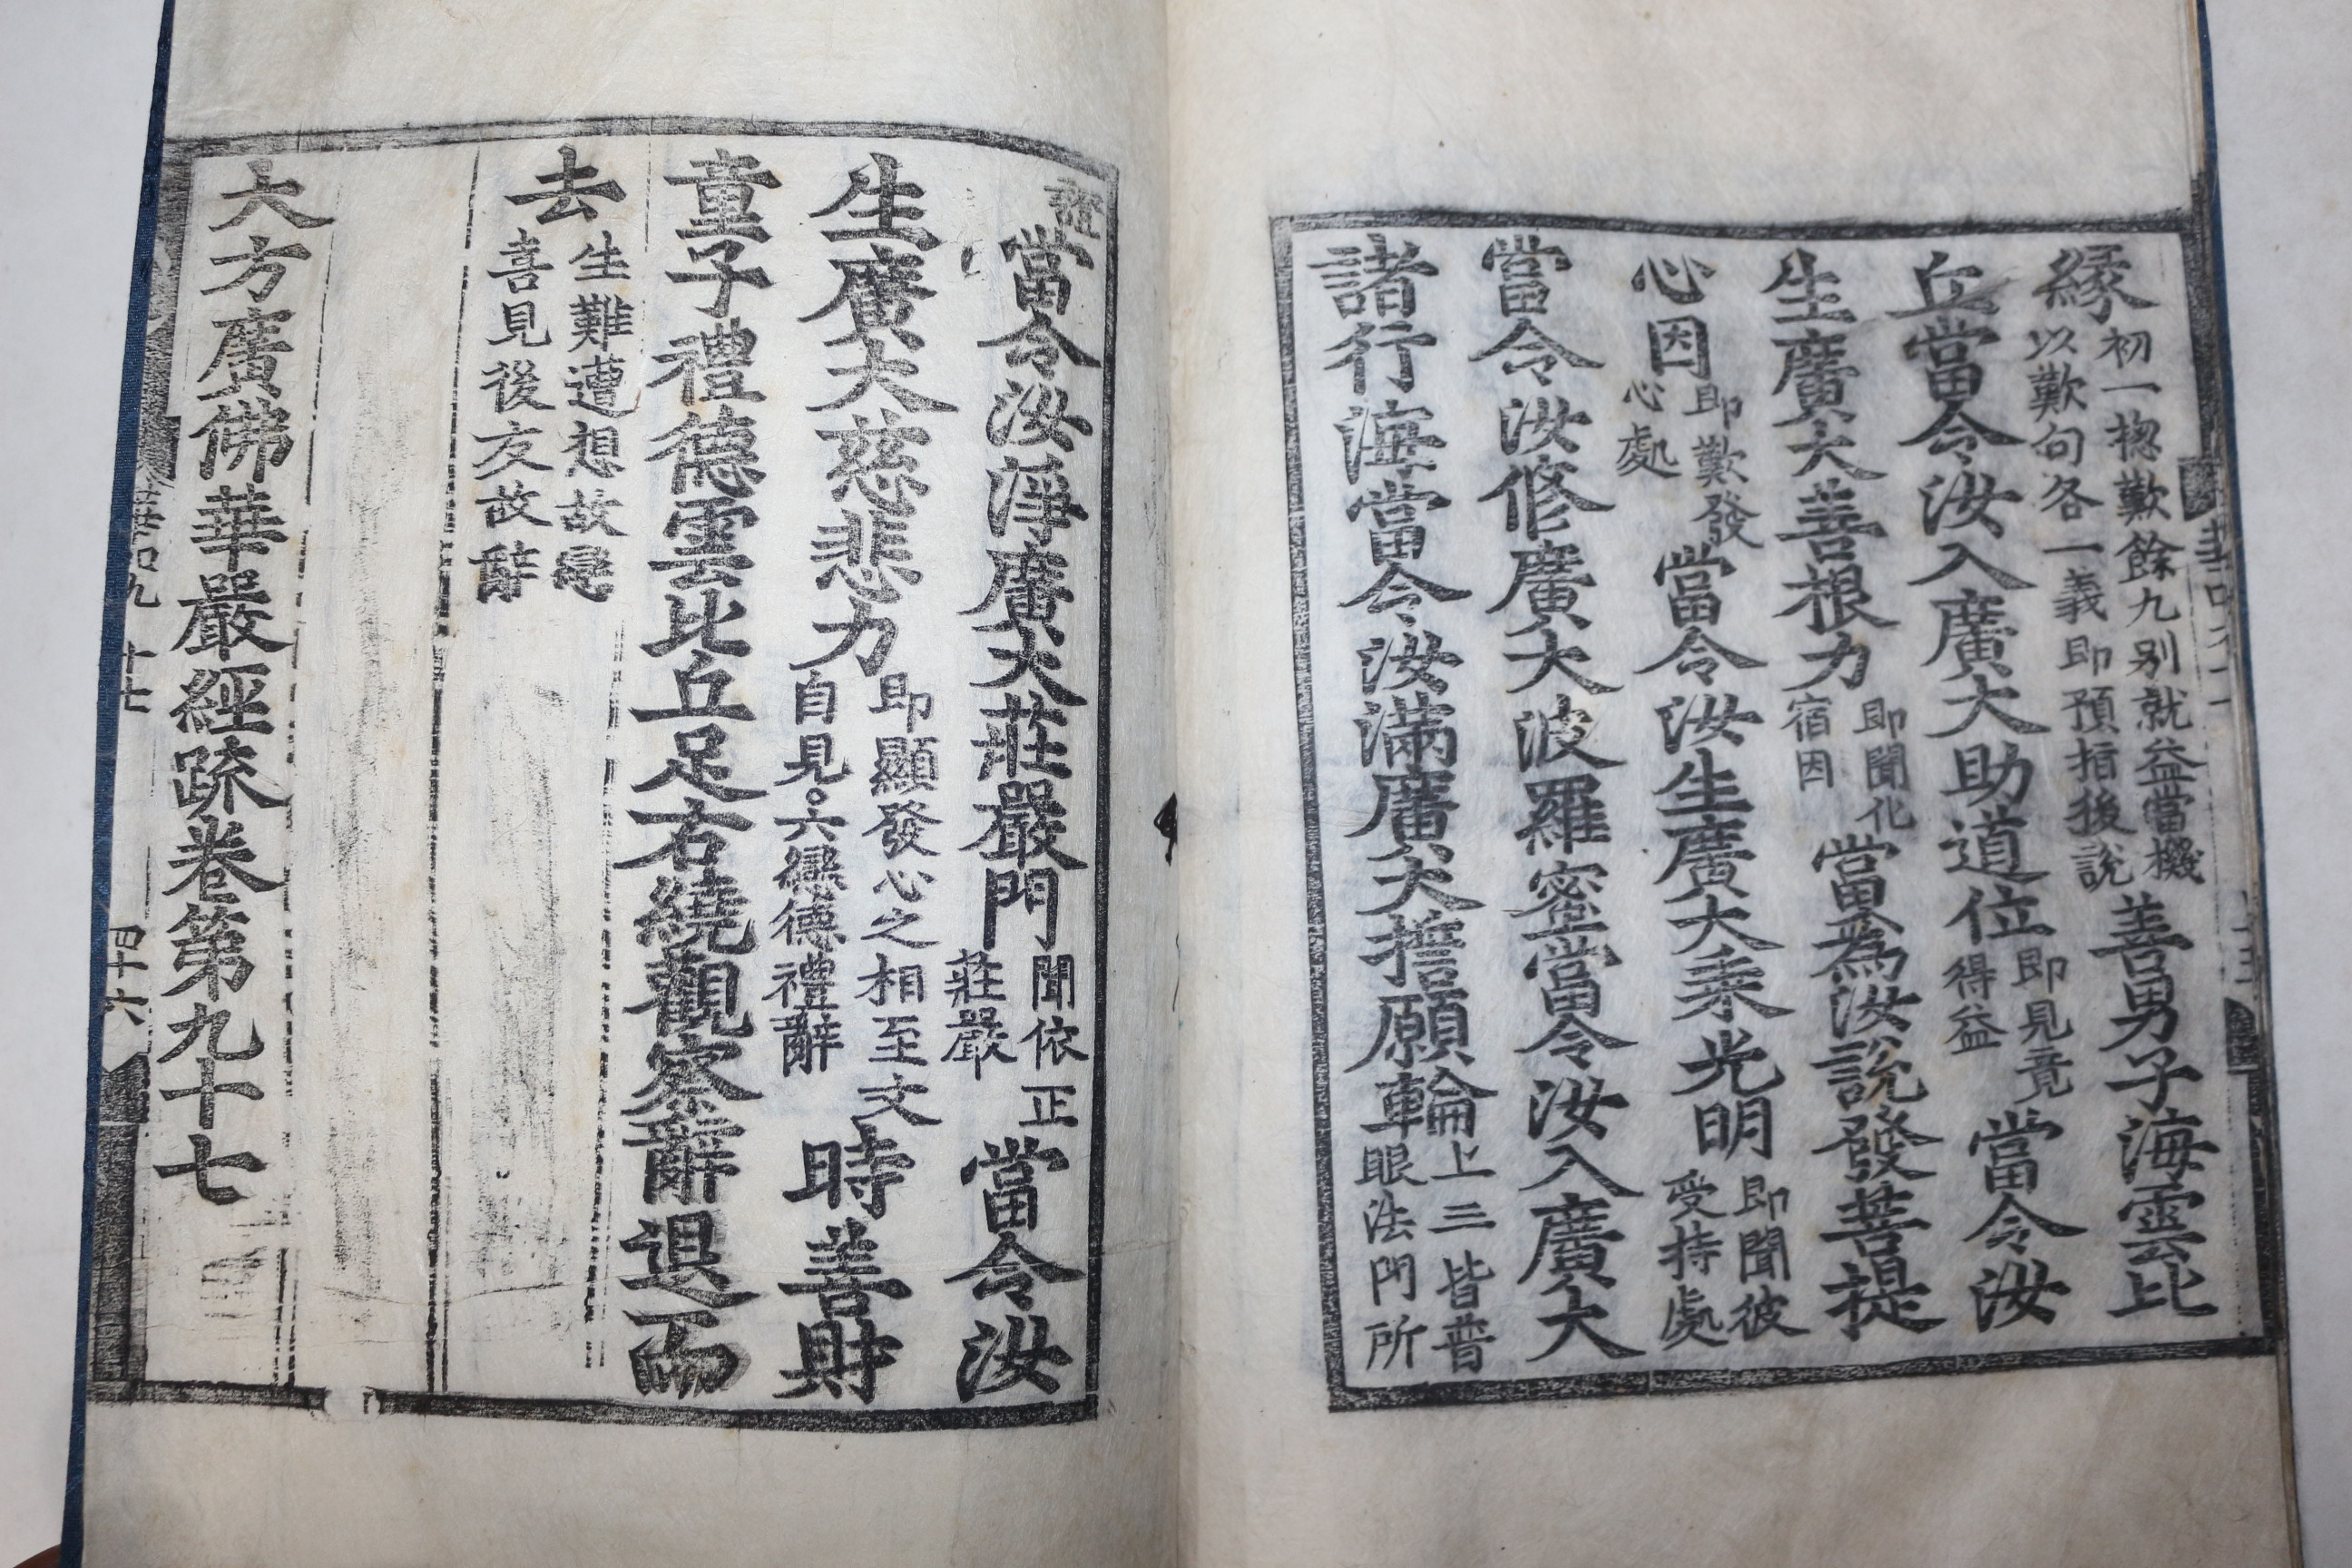 緣初一揔歎餘九别就益當機以歎句各一義即預指後說善男子海雲比
丘當令汝入廣大助道位即見竟得益當令汝
生廣大善根力即聞化宿因當為汝說發菩提
心因即歎發心處當令汝生廣大乘光明即聞彼受持處
當令汝修廣大波羅密當令汝入廣大
諸行海當令汝滿廣大誓願輪上三皆普眼法門所
證當令汝淨廣大莊嚴門聞依正莊嚴當令汝
生廣大慈悲力即顯發心之相至文自見。六戀德禮辭時善財
童子禮德雲比丘足右繞觀察辭退而
去生難遭想故戀喜見後友故辭
大方廣佛華嚴經疏卷第九十七
四十六